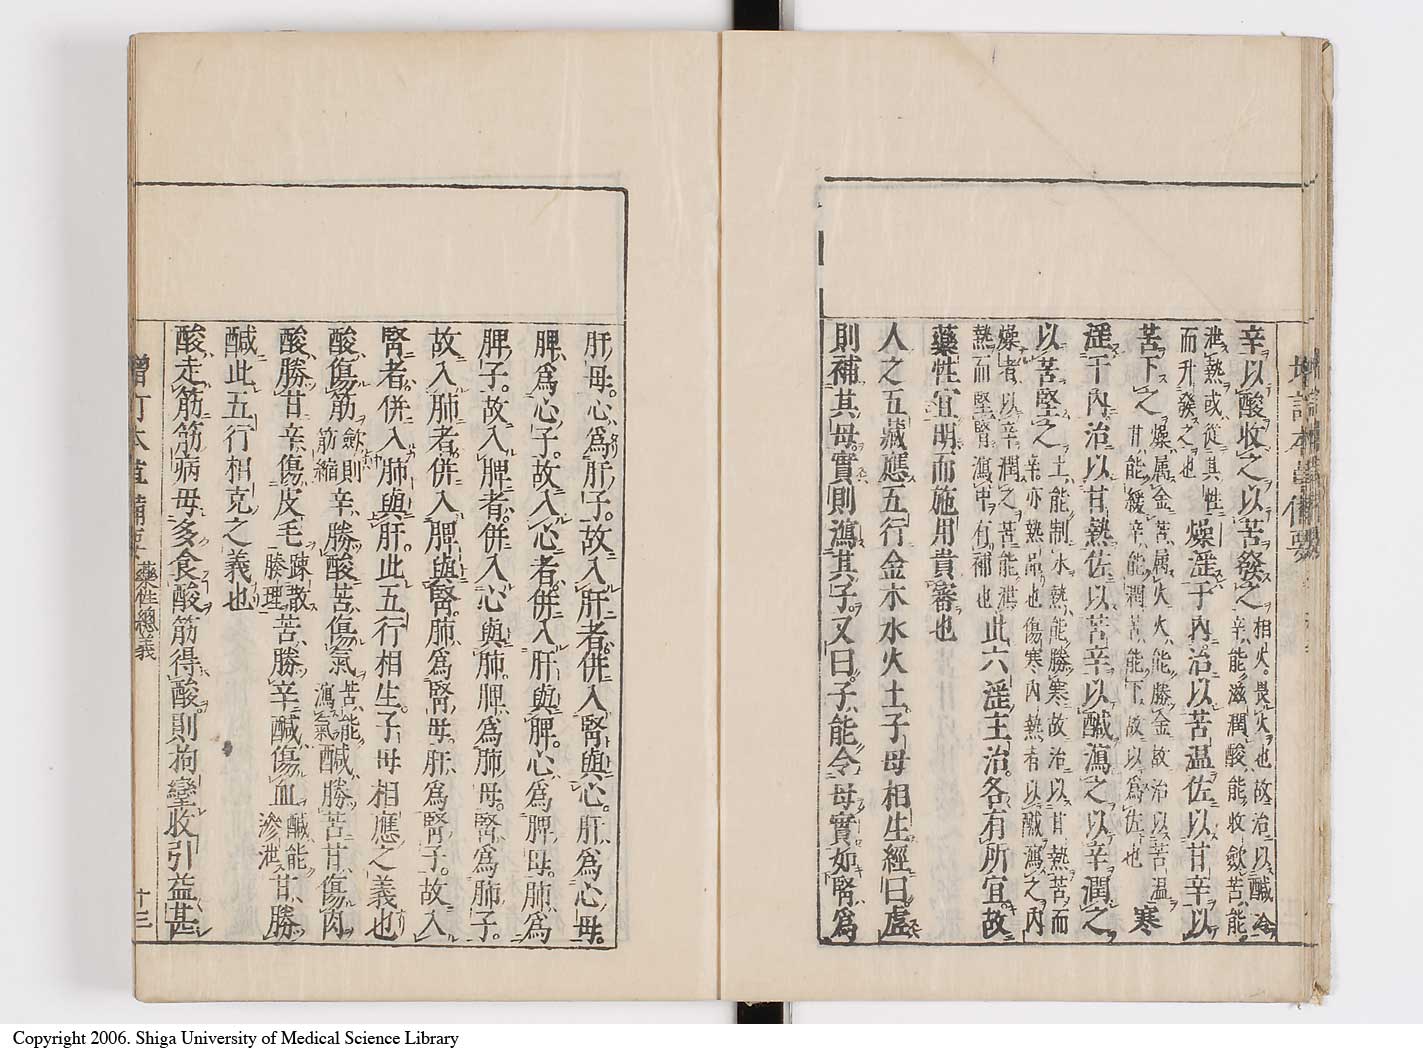 辛以酸收之以苦發之相火畏火也故治以鹹冷辛能滋潤酸能收斂苦能
泄熱或從其性而升發之也燥淫于內治以苦温佐以甘辛以
苦下之燥属金苦属火火能勝金故治以苦温甘能緩辛能潤苦能下故以爲佐也寒
淫于內治以甘熱佐以苦辛以鹹瀉之以辛潤之
以苦堅之土能制水熱能勝寒故治以甘熱苦而辛亦熱品也傷寒內熱者以鹹瀉之內
燥者以辛潤之苦能泄熱而堅腎瀉中有補也此六淫主治各有所宜故
藥性宜明而施用貴審也
人之五藏應五行金木水火土子母相生經曰虛
則補其母實則瀉其子又曰子能令母實如腎爲
肝母心爲肝子故入肝者併入腎與心肝爲心母
脾爲心子故入心者併入肝與脾心爲脾母肺爲
脾子故入脾者併入心與肺脾爲肺母腎爲肺子
故入肺者併入脾與腎肺爲腎母肝爲腎子故入
腎者併入肺與肝此五行相生子母相應之義也
酸傷筋斂則筋縮辛勝酸苦傷氣苦能瀉氣鹹勝苦甘傷肉
酸勝甘辛傷皮毛疎散腠理苦勝辛鹹傷血鹹能滲泄甘勝
鹹此五行相克之義也
酸走筋筋病毋多食酸筋得酸則拘攣收引益甚
藥性總義
十三